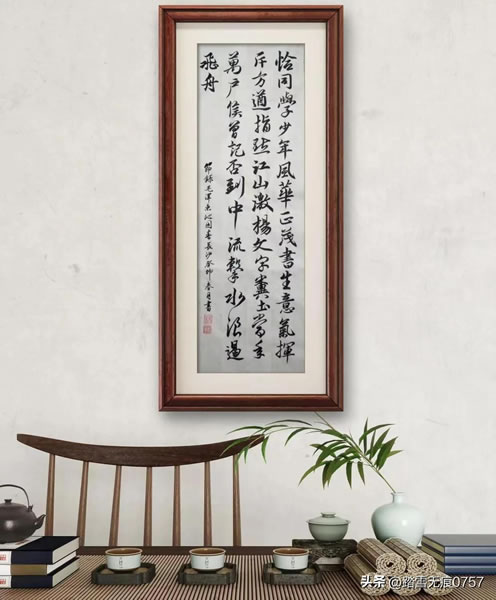 恰同學少年風華正茂書生意氣揮
斥方遒指點江山激揚文字糞土當年
萬户侯曾記否到中流擊水浪遏
飛舟
節錄毛澤東沁園春長沙癸卯春月書
头条 @踏雪无痕0757